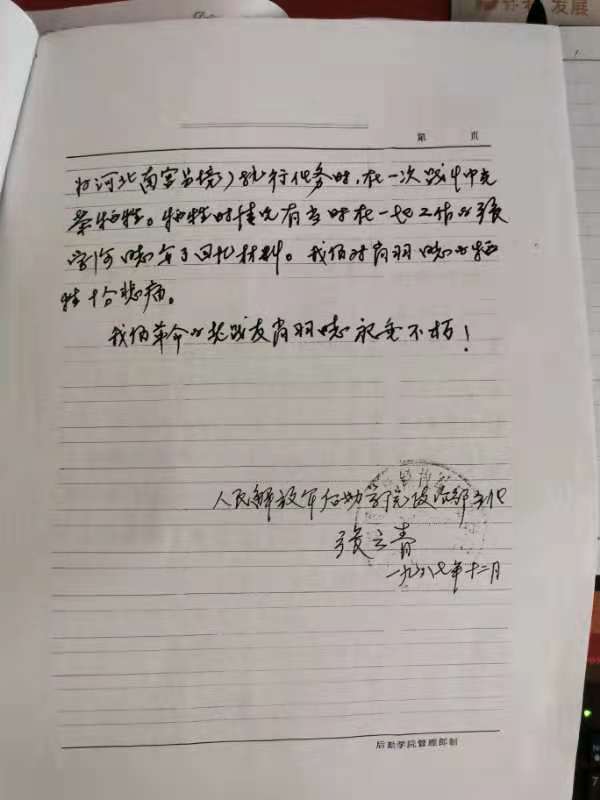 发展
第 页
于河北南宫县境)执行任务时,在一次战斗中光
荣牺牲。牺牲时情况有当时在一起工作的张
同志写了回忆材料。我们对肖羽同志的牺
牲十分悲痛。
我们革命的老战友肖羽同志永垂不朽!
人民解放军后勤学院政治部主任
张云青
一九八七年十二月
后勤学院管理部制